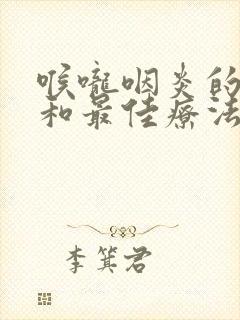 喉嚨咽炎的
和最佳療法
李箕君